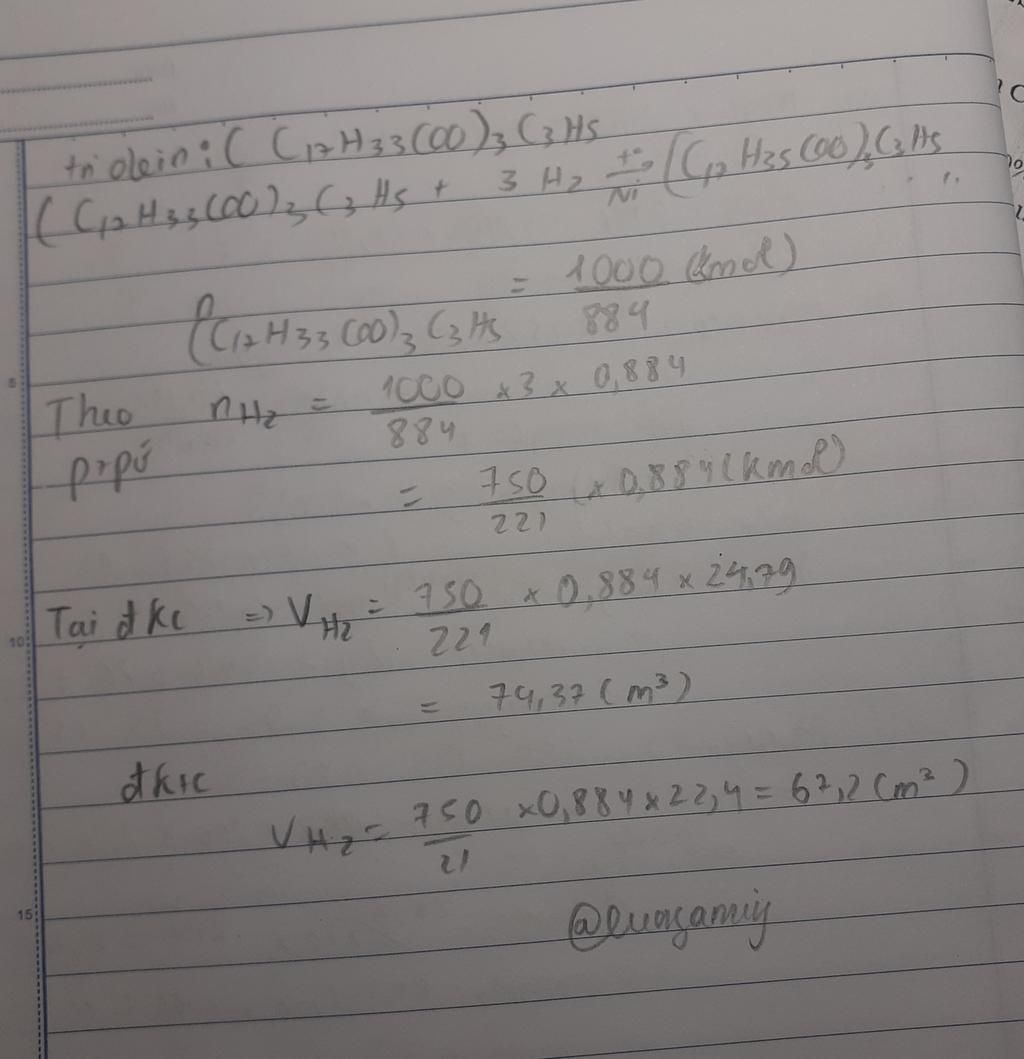 tri olein : ( C17H33COO)3C3H5
(C17H33COO)3C3H5 + 3 H2 t° Ni (C17H35COO)3C3H5
n (C17H33COO)3C3H5 = 1000/884 (kmol)
Theo ptpứ nH2 = 1000/884 × 3 × 0,884
= 750/221 × 0,884 (kmol)
Tại đkc => VH2 = 750/221 × 0,884 × 24,79
= 74,37 (m³)
đktc
VH2 = 750/21 × 0,884 × 22,4 = 67,2 (m³)
5
10
15